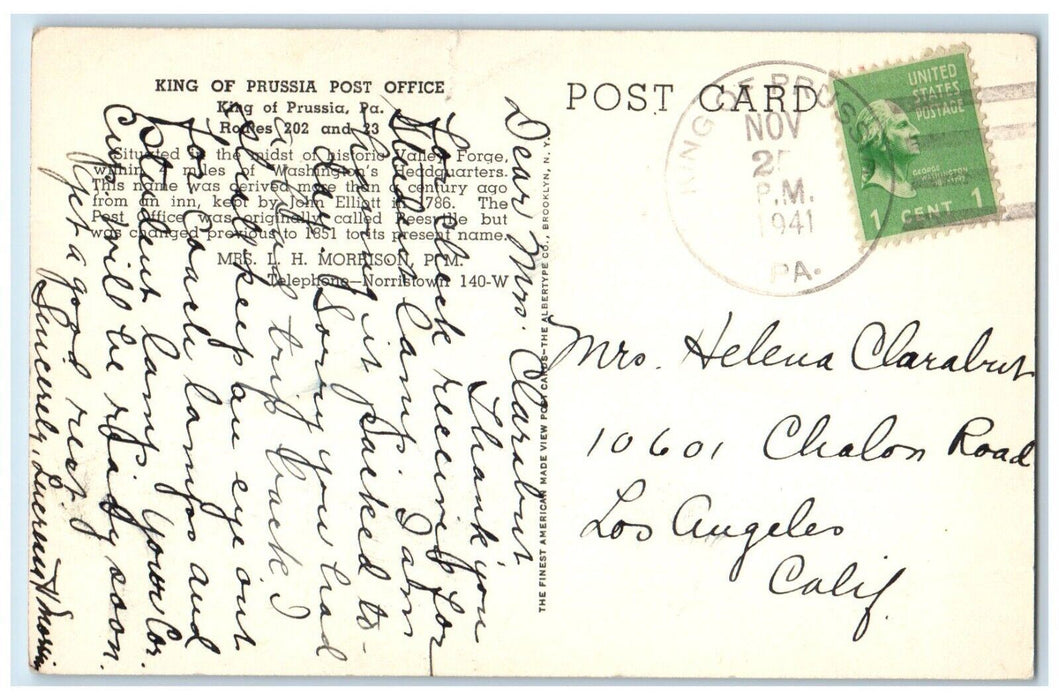 KING OF PRUSSIA POST OFFICE
King of Prussia, Pa.
Routes 202 and 23
Situated in the midst of historic Valley Forge,
within 4 miles of Washington's Headquarters.
This name was derived more than a century ago
from an inn, kept by John Elliott in 1786. The
Post Office was originally called Reesville but
was changed previous to 1851 to its present name.
MRS. L. H. MORRISON, P. M.
Telephone—Norristown 140-W
Dear Mrs. Clarabut
Thank you
for check received for
Student Lamp. I am
having it packed to-
day. Sorry you had
trip back I
will keep an eye out
for Coach lamps and
Student lamp. Your Cor.
Cup. will be ready soon.
Get a good rest.
Sincerely, Lucretia H Morrison
THE FINEST AMERICAN MADE VIEW POST CARDS—THE ALBERTYPE CO., BROOKLYN, N. Y.
POST CARD
KING OF PRUSSIA
NOV
25
P.M.
1941
PA.
UNITED
STATES
POSTAGE
GEORGE
WASHINGTON
1 CENT 1
Mrs. Helena Clarabut
10601 Chalon Road
Los Angeles
Calif.